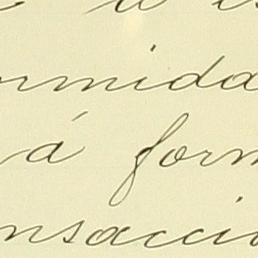 rmida
á form
nsacció